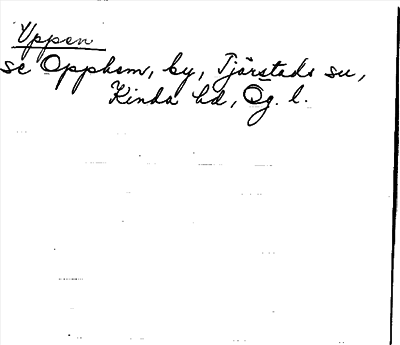 Uppen
se Opphem, by, Tjärstads sn,
Kinda hd, Ög. l.